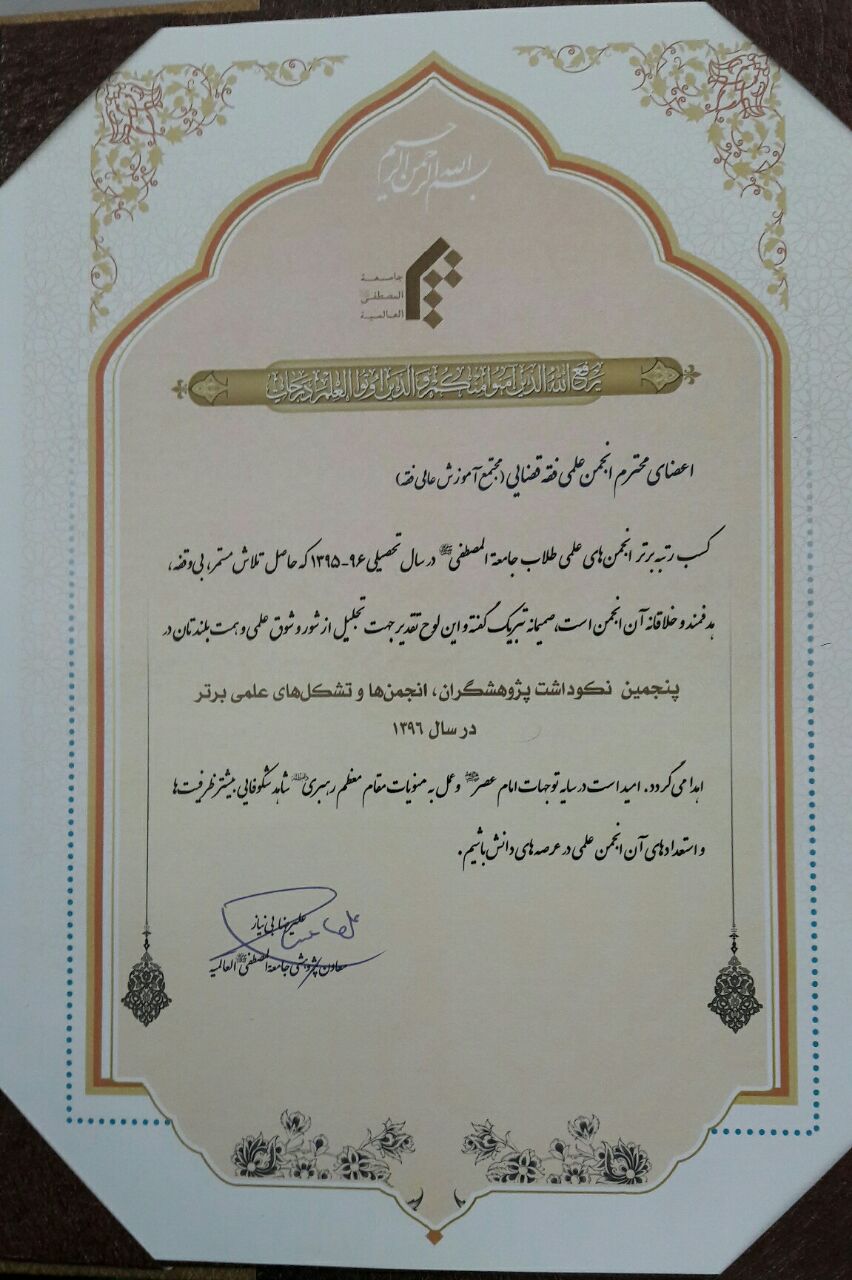 بسم الله الرحمن الرحیم
جامعة
المصطفی
العالمیة
یرفع الله الذین آمنوا منکم و الذین اوتوا العلم درجات
اعضای محترم انجمن علمی فقه قضایی (مجتمع آموزش عالی فقه)
کسب رتبه برتر انجمن‌های علمی طلاب جامعة المصطفی ﷺ در سال تحصیلی ۹۶-۱۳۹۵ که حاصل تلاش مستمر، بی‌وقفه،
هدفمند و خلاقانه آن انجمن است، صمیمانه تبریک گفته و این لوح تقدیر جهت تجلیل از شور و شوق علمی و همت بلندتان در
پنجمین نکوداشت پژوهشگران، انجمن‌ها و تشکل‌های علمی برتر
در سال ۱۳۹۶
اهدا می‌گردد. امید است در سایه توجهات امام عصر و عمل به منویات مقام معظم رهبری شاهد شکوفایی بیشتر ظرفیت‌ها
و استعدادهای آن انجمن علمی در عرصه‌های دانش باشیم.
علیرضا بی‌نیاز
معاون پژوهشی جامعة المصطفی ﷺ العالمیه